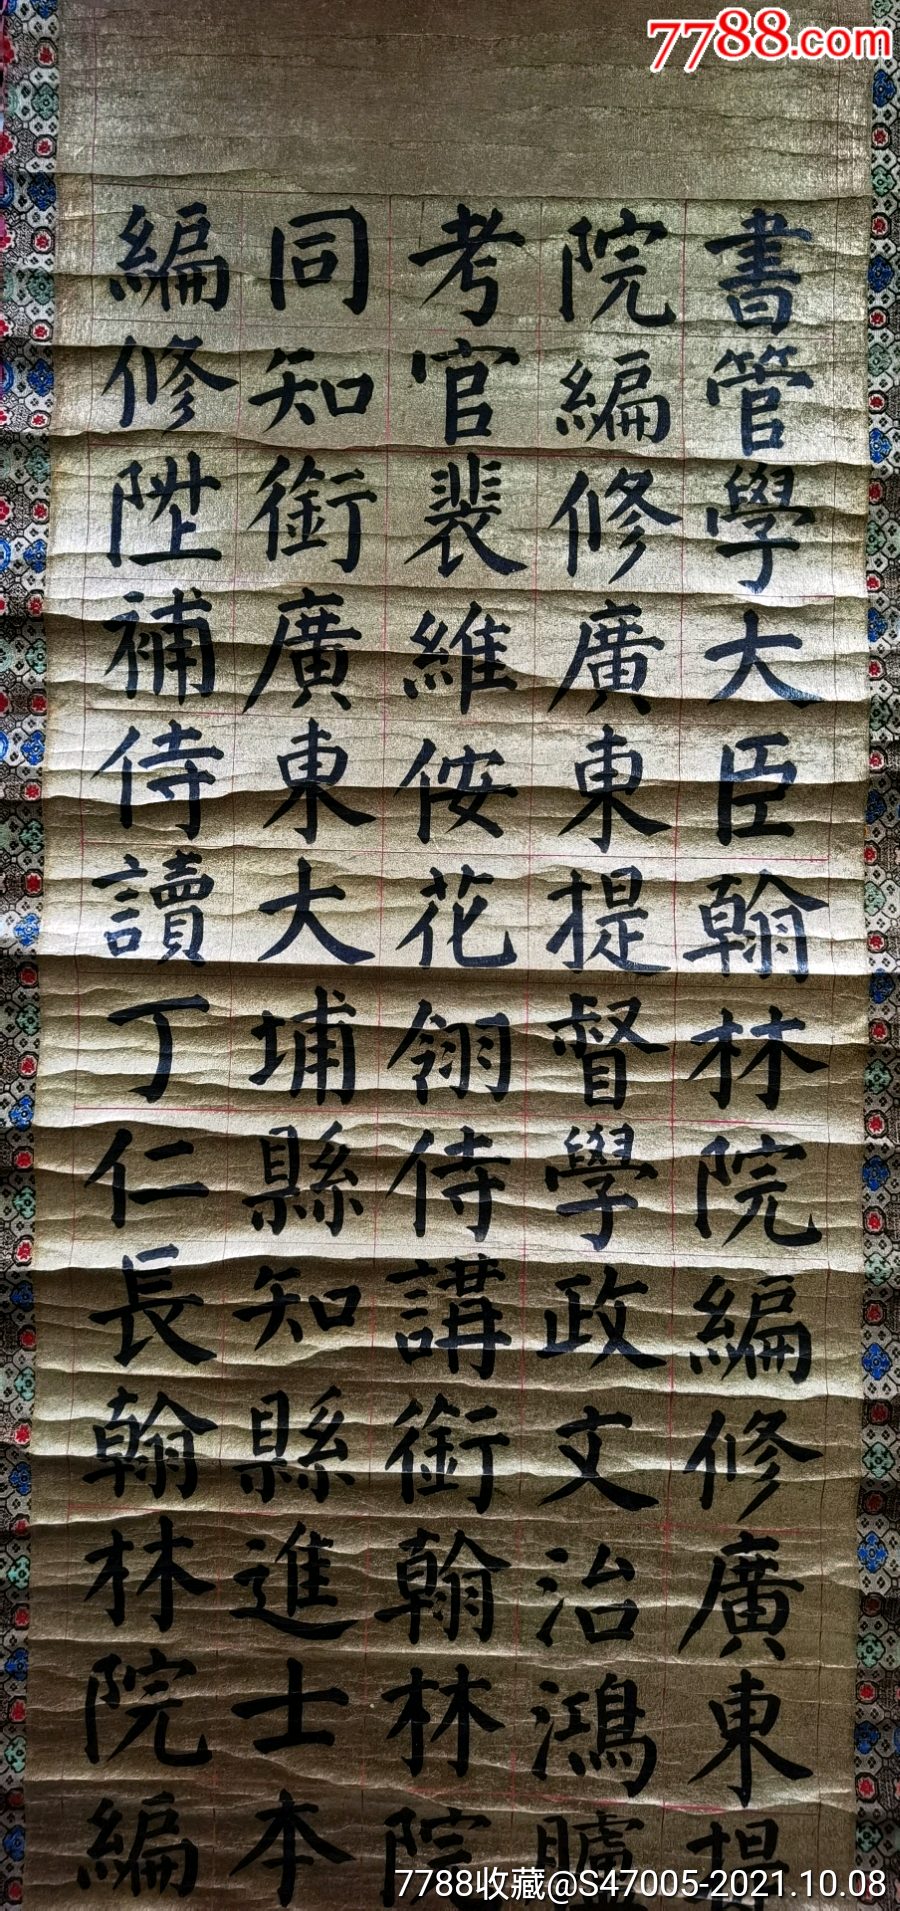 7788.com
書管學大臣翰林院編修廣東提
院編修廣東提督學政文治鴻臚
考官裴維侒花翎侍講銜翰林院
同知銜廣東大埔縣知縣進士本
編修陞補侍讀丁仁長翰林院編
7788收藏@S47005-2021.10.08